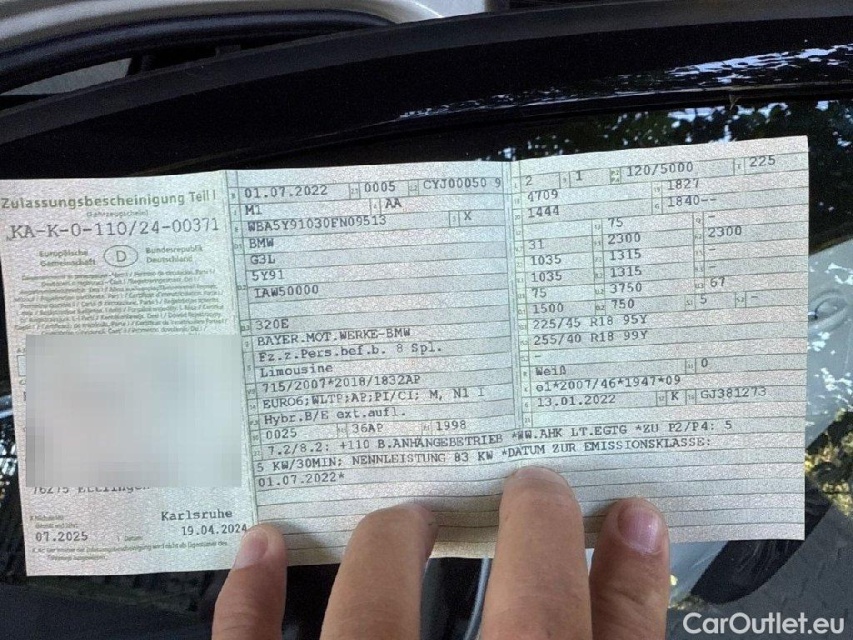 Zulassungsbescheinigung Teil I
(Fahrzeugschein)
KA-K-O-110/24-00371
Europäische Gemeinschaft
D
Bundesrepublik Deutschland
76275 Ettlingen
Karlsruhe
07.2025
19.04.2024
01.07.2022 0005 CYJ00050 9
M1 AA
WBA5Y91030FN09513 X
BMW
G3L
5Y91
IAW50000
320E
BAYER.MOT.WERKE-BMW
Fz.z.Pers.bef.b. 8 Spl.
Limousine
715/2007*2018/1832AP
EURO6;WLTP;AP;PI/CI; M, N1 I
Hybr.B/E ext.aufl.
0025 36AP 1998
2 1 120/5000 225
4709 1827
1444 1840--
75 --
31 2300 2300
1035 1315 --
1035 1315 --
75 3750 67
1500 750 5 --
225/45 R18 95Y
255/40 R18 99Y
-
-
Weiß 0
e1*2007/46*1947*09
13.01.2022 K GJ381273
7.2/8.2: +110 B.ANHÄNGEBETRIEB *WW.AHK LT.EGTG *ZU P2/P4: 5
5 KW/30MIN; NENNLEISTUNG 83 KW *DATUM ZUR EMISSIONSKLASSE:
01.07.2022*
CarOutlet.eu